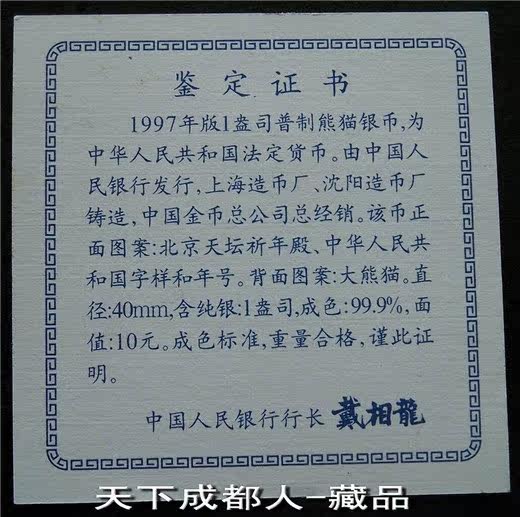 鉴定证书
1997年版1盎司普制熊猫银币,为
中华人民共和国法定货币。由中国人
民银行发行,上海造币厂、沈阳造币厂
铸造,中国金币总公司总经销。该币正
面图案:北京天坛祈年殿、中华人民共
和国字样和年号。背面图案:大熊猫。直
径:40mm,含纯银:1盎司,成色:99.9%,面
值:10元。成色标准,重量合格,谨此证
明。
中国人民银行行长 戴相龍
天下成都人-藏品